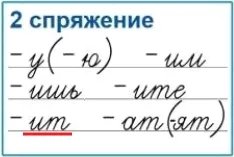 2 спряжение
-у(-ю) -им
-ишь -ите
-ит -ат(-ят)